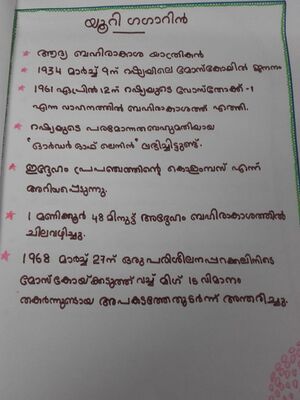 യൂറി ഗഗാറിൻ
ആദ്യ ബഹിരാകാശ യാത്രികൻ
1934 മാർച്ച് 9ന് റഷ്യയിലെ മോസ്കോയിൽ ജനനം
1961 ഏപ്രിൽ 12ന് റഷ്യയുടെ വോസ്തോക്ക് -1
എന്ന വാഹനത്തിൽ ബഹിരാകാശത്ത് എത്തി.
റഷ്യയുടെ പരമോന്നതബഹുമതിയായ
"ഓർഡർ ഓഫ് ലെനിൻ" ലഭിച്ചിട്ടുണ്ട്.
ഇദ്ദേഹം പ്രപഞ്ചത്തിന്റെ കൊളംബസ് എന്ന്
അറിയപ്പെടുന്നു.
1 മണിക്കൂർ 48 മിനുട്ട് അദ്ദേഹം ബഹിരാകാശത്തിൽ
ചിലവഴിച്ചു.
1968 മാർച്ച് 27ന് ഒരു പരിശീലനപ്പറക്കലിനിടെ
മോസ്കോയ്ക്കടുത്ത് വച്ച് മിഗ് 15 വിമാനം
തകർന്നുണ്ടായ അപകടത്തെതുടർന്ന് അന്തരിച്ചു.